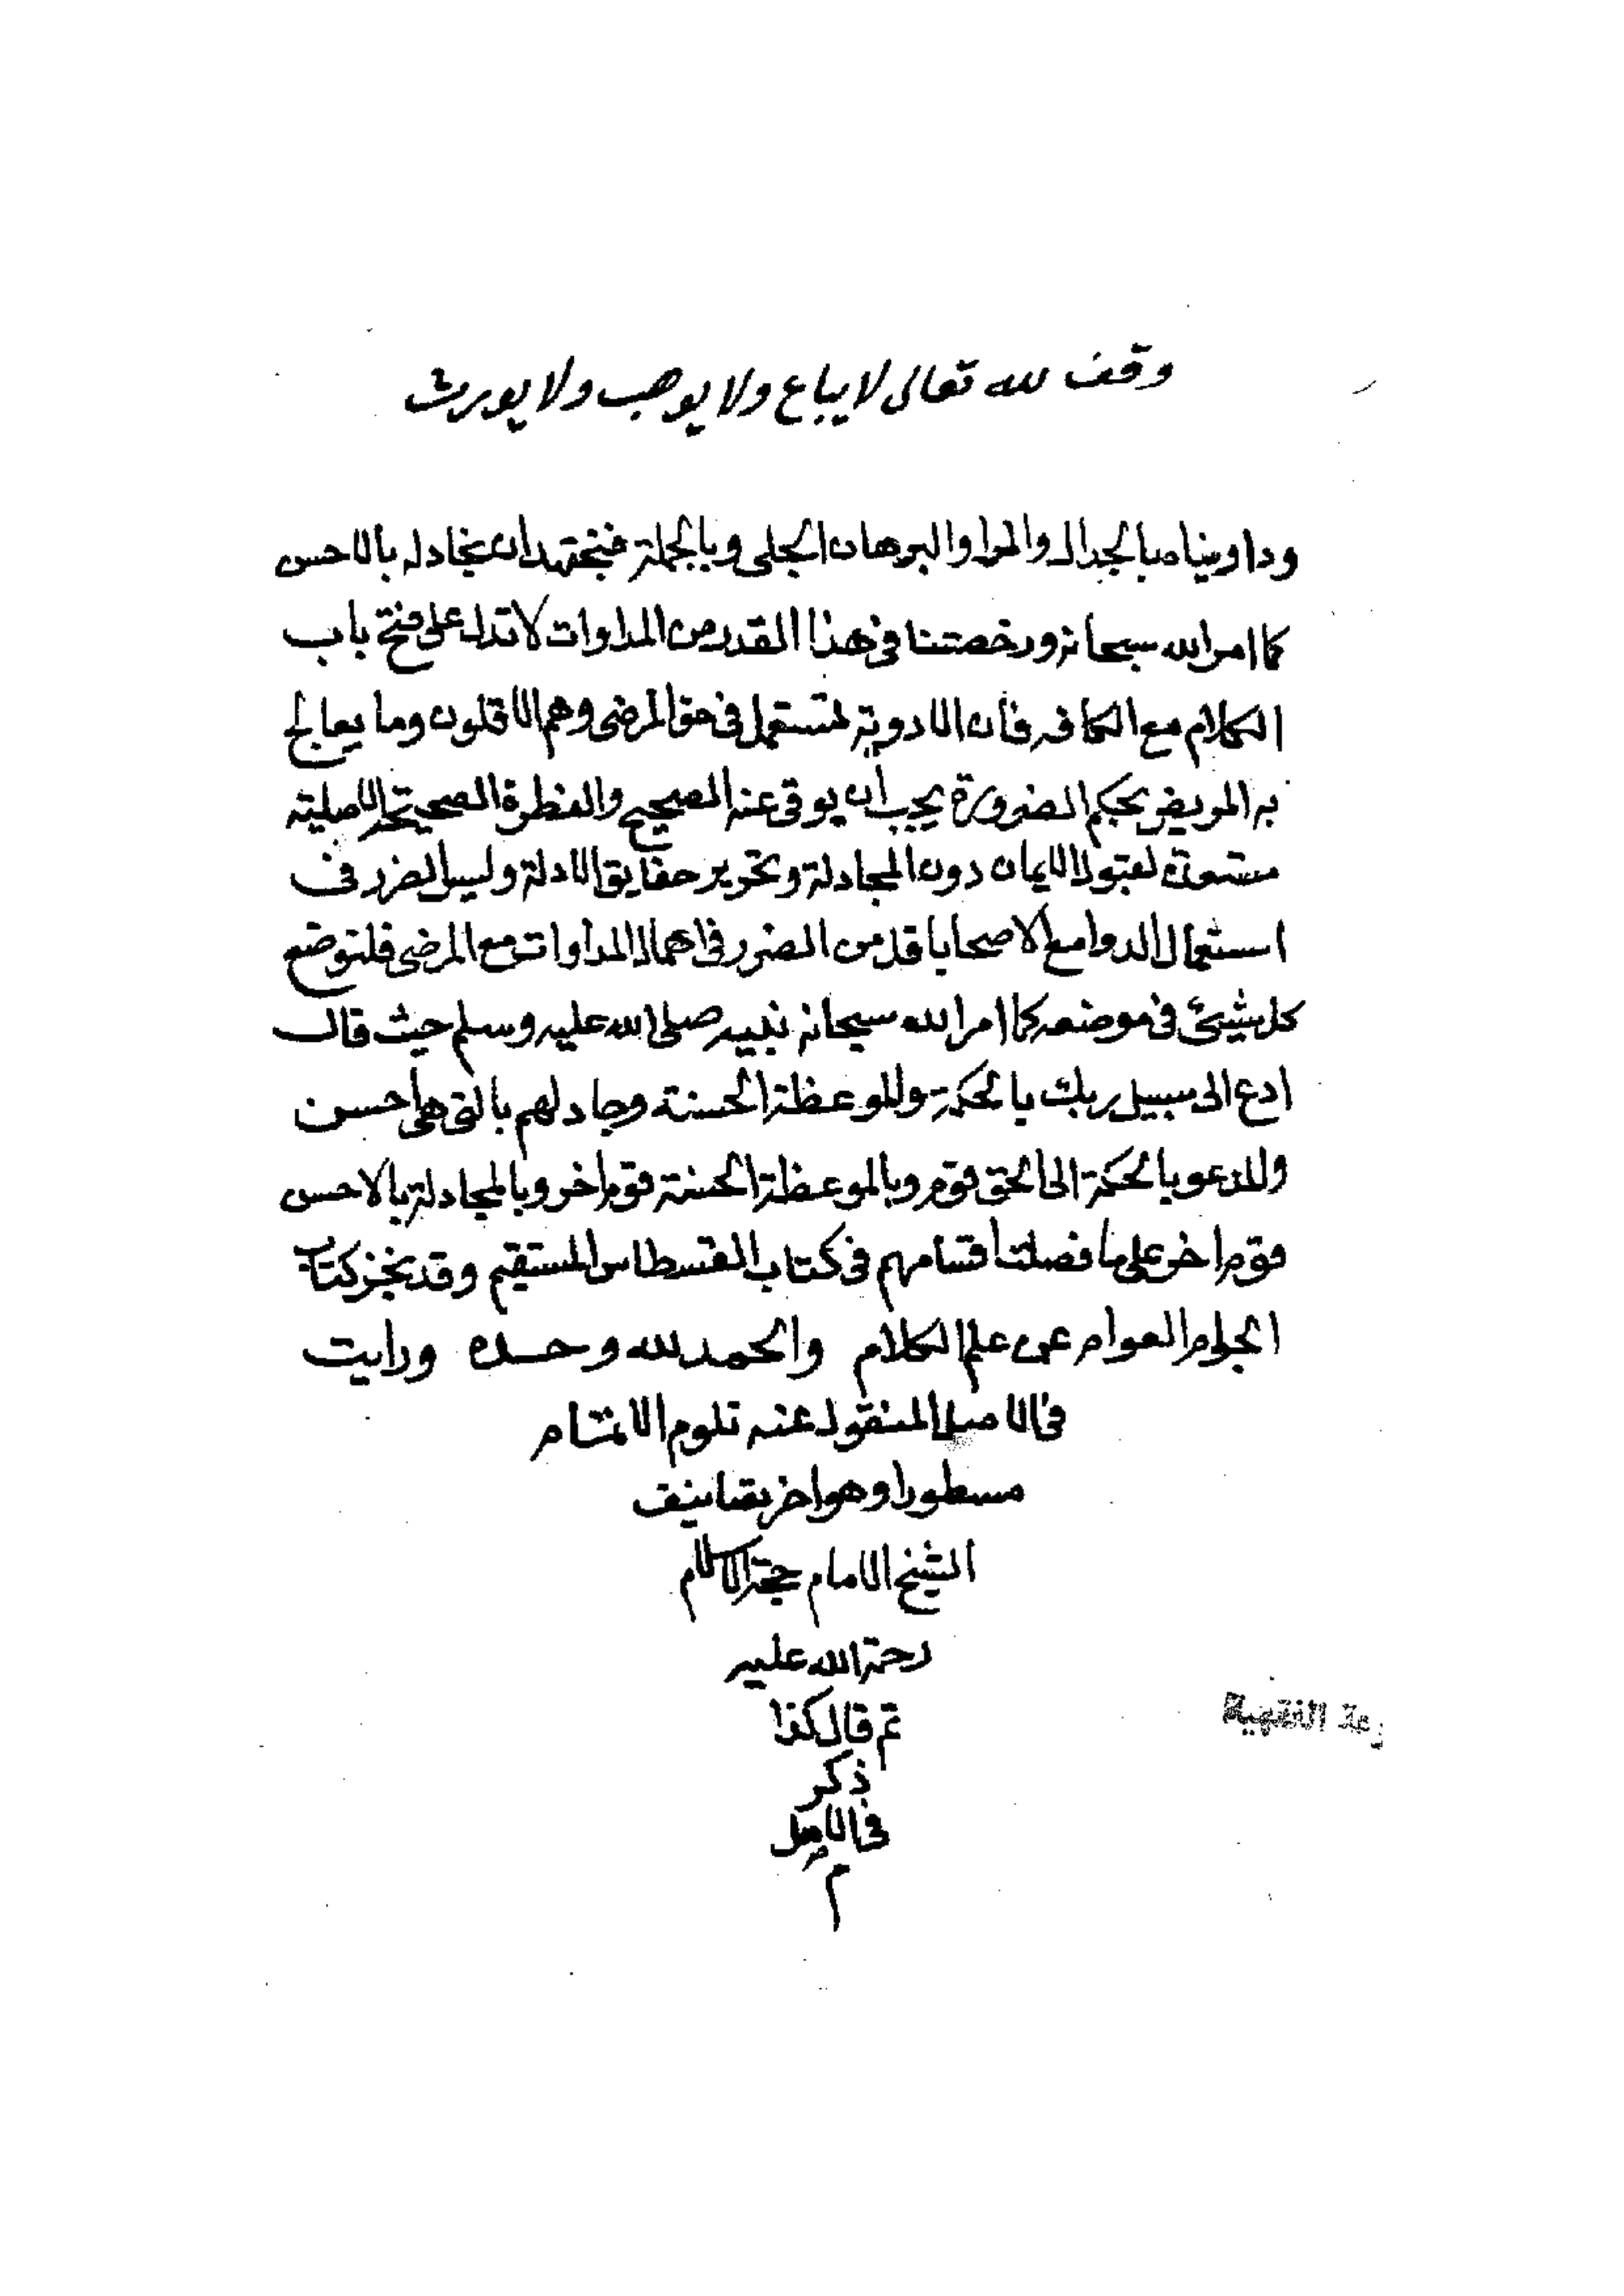 وقف لله تعالى لا يباع ولا يوهب ولا يورث
وداويناه بالجدال والمرا والبرهان الجلى وبالجملة فنجتهد ان نجادله بالاحسن
كما امر الله سبحانه ورخصتنا فى هذا القدر من المداوات لا تدل على فتح باب
الكلام مع الكافه فأن الادوية تستعمل فى حق المرضى وهم الاقلون وما يعالج
به المريض بحكم الضرورة يجب أن يوقى عنه الصحيح والفطرة الصحيحة الاصلية
مستعدة لقبول الايمان دون المجادلة وتحرير حقايق الادلة وليس الضرر فى
استعمال الدوا مع الاصحا باقل من الضرر فى اهمال المداوات مع المرضى فلتوضع
كل شيئ فى موضعه كما امر الله سبحانه نبيه صلى الله عليه وسلم حيث قال
ادع الى سبيل ربك بالحكمة والموعظة الحسنة وجادلهم بالتى هى أحسن
والمدعو بالحكمة الى الحق قوم وبالموعظة الحسنة قوم اخر وبالمجادلة بالاحسن
قوم اخر على ما فصلنا أقسامهم فى كتاب القسطاس المستقيم وقد نجز كتاب
الجام العوام عن علم الكلام والحمد لله وحده ورايت
فى الاصل المنقول عنه تلوم الاتمام
مسطورا وهو اخر تصانيف
الشيخ الامام حجة الاسلام
رحمة الله عليه
تم قال كذا
ذكر
فى الاصل
م
الفقهية